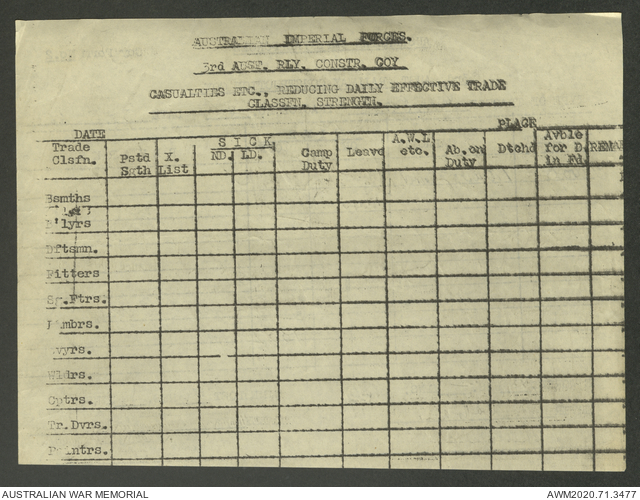 AUSTRALIAN IMPERIAL FORCES.
3rd AUST. RLY. CONSTR. COY
CASUALTIES ETC., REDUCING DAILY EFFECTIVE TRADE
CLASSFN. STRENGTH.
DATE PLACE
Trade Clsfn. Pstd Sgth X. List SICK ND. LD. Camp Duty Leave A.W.L etc. Ab.on Duty Dtchd Avble for D. in Fd.
Bsmths
Dftsmn.
Fitters
Sg.Ftrs.
Wldrs.
Cptrs.
Tr.Dvrs.
AUSTRALIAN WAR MEMORIAL AWM2020.71.3477